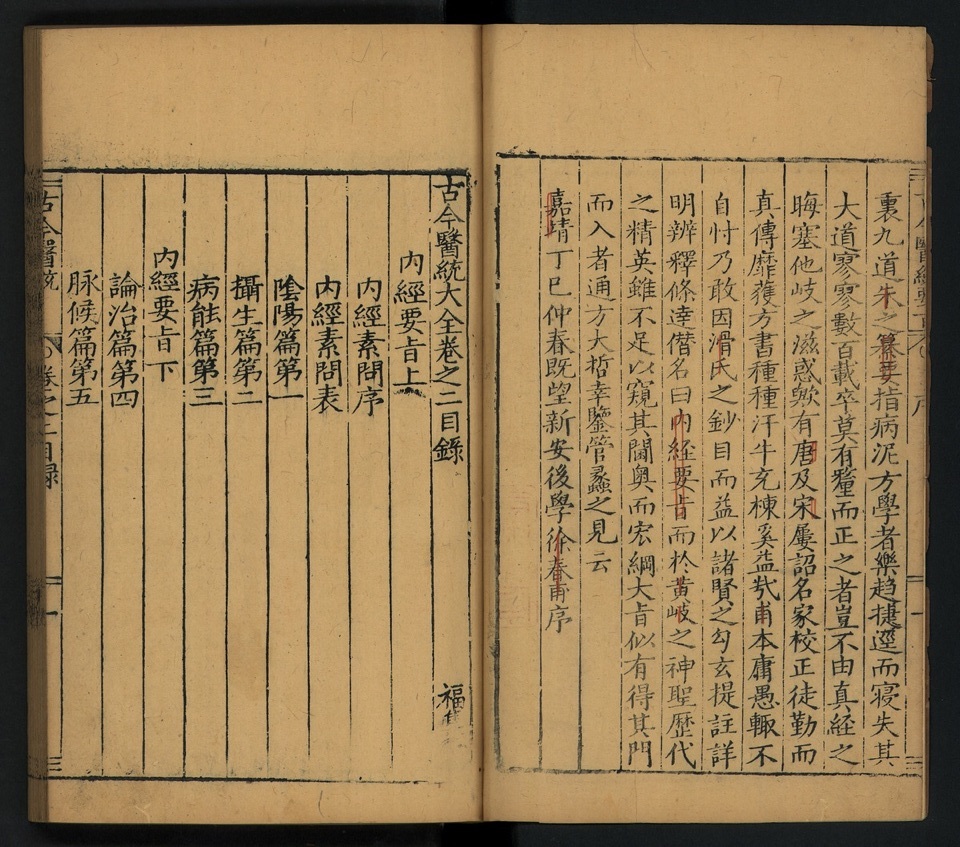 裏九道朱之纂要指病泥方學者樂趋捷逕而寝失其
大道寥寥數百載卒莫有釐而正之者豈不由真経之
晦塞他岐之滋惑歟有唐及宋屢詔名家校正徒勤而
真傳靡獲方書種種汗牛充棟奚益㦲甫本庸愚輙不
自忖乃敢因滑氏之鈔目而益以諸賢之勾玄提註詳
明辨釋條達僣名曰内経要旨而於黄岐之神聖歴代
之精英雖不足以窺其閫奥而宏綱大旨似有得其門
而入者通方大哲幸鑒管蠡之見云
嘉靖丁巳仲春既望新安後學徐春甫序
古今醫統大全卷之二目錄
内經要旨上
内經素問序
内經素問表
陰陽篇第一
攝生篇第二
病能篇第三
内經要旨下
論治篇第四
脉候篇第五
福
古今醫統 卷之二目録 一